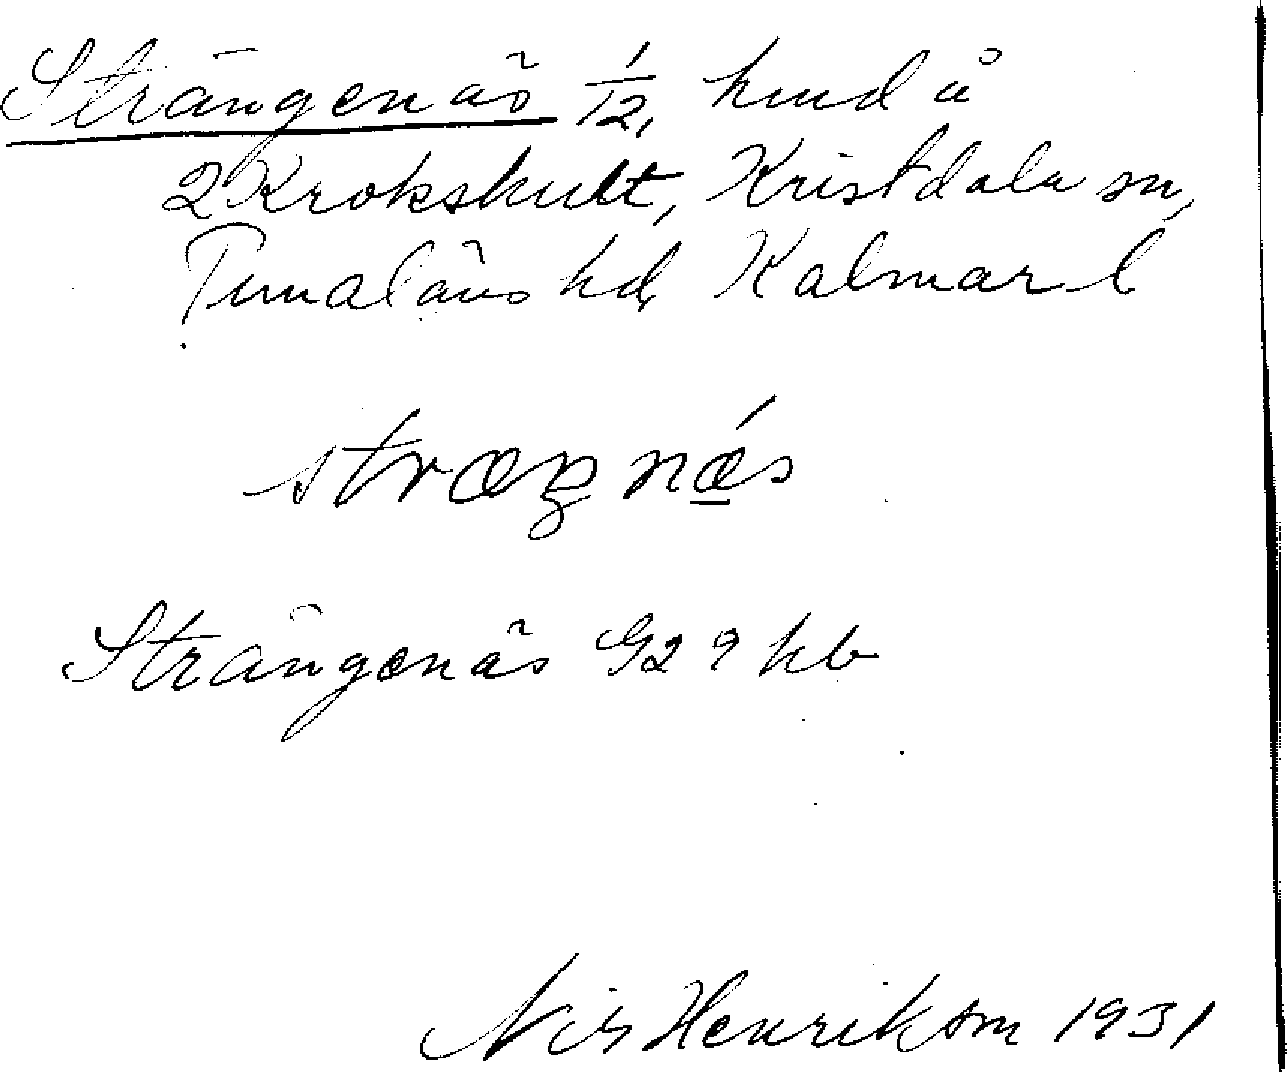 Strängenäs 1/12, hmd å
2 Krokshult, Kristdala sn,
Tunaläns hd, Kalmar l
stræŋnǽ̠s
Strängenäs G29 kb
Nils Henrikson 1931